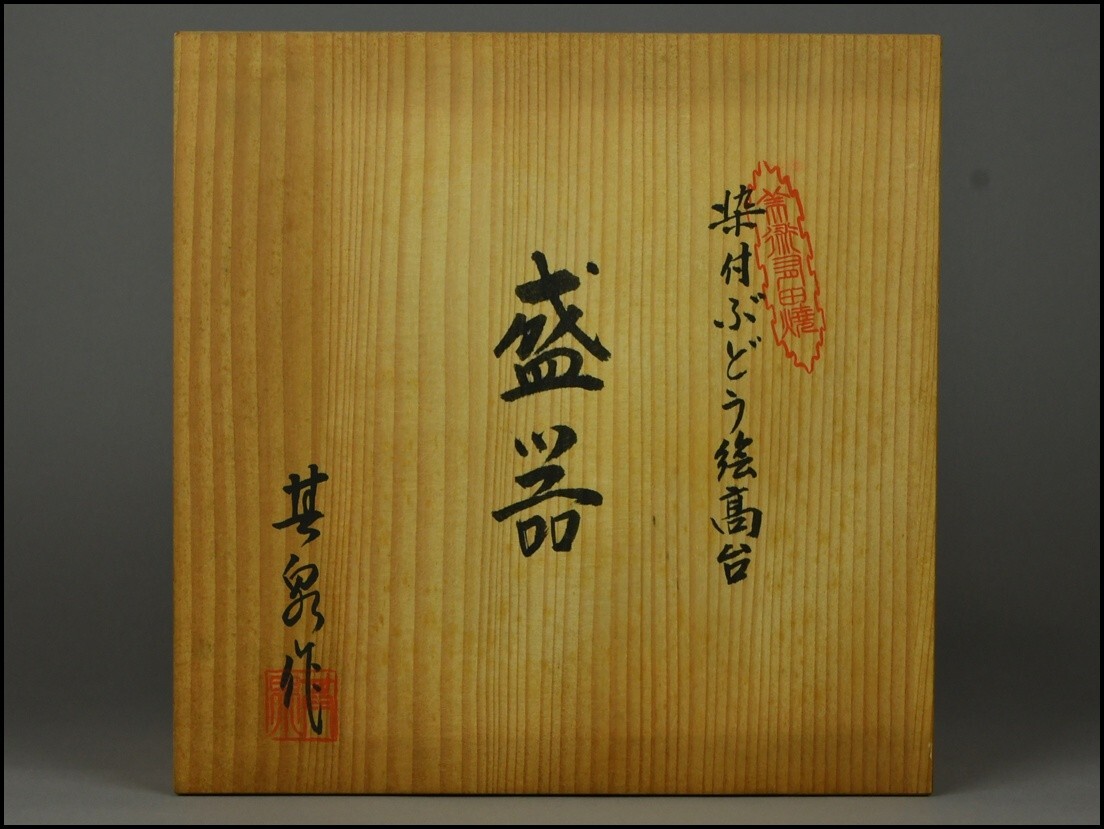 美術有田焼
染付ぶどう絵高台
盛器
其泉作